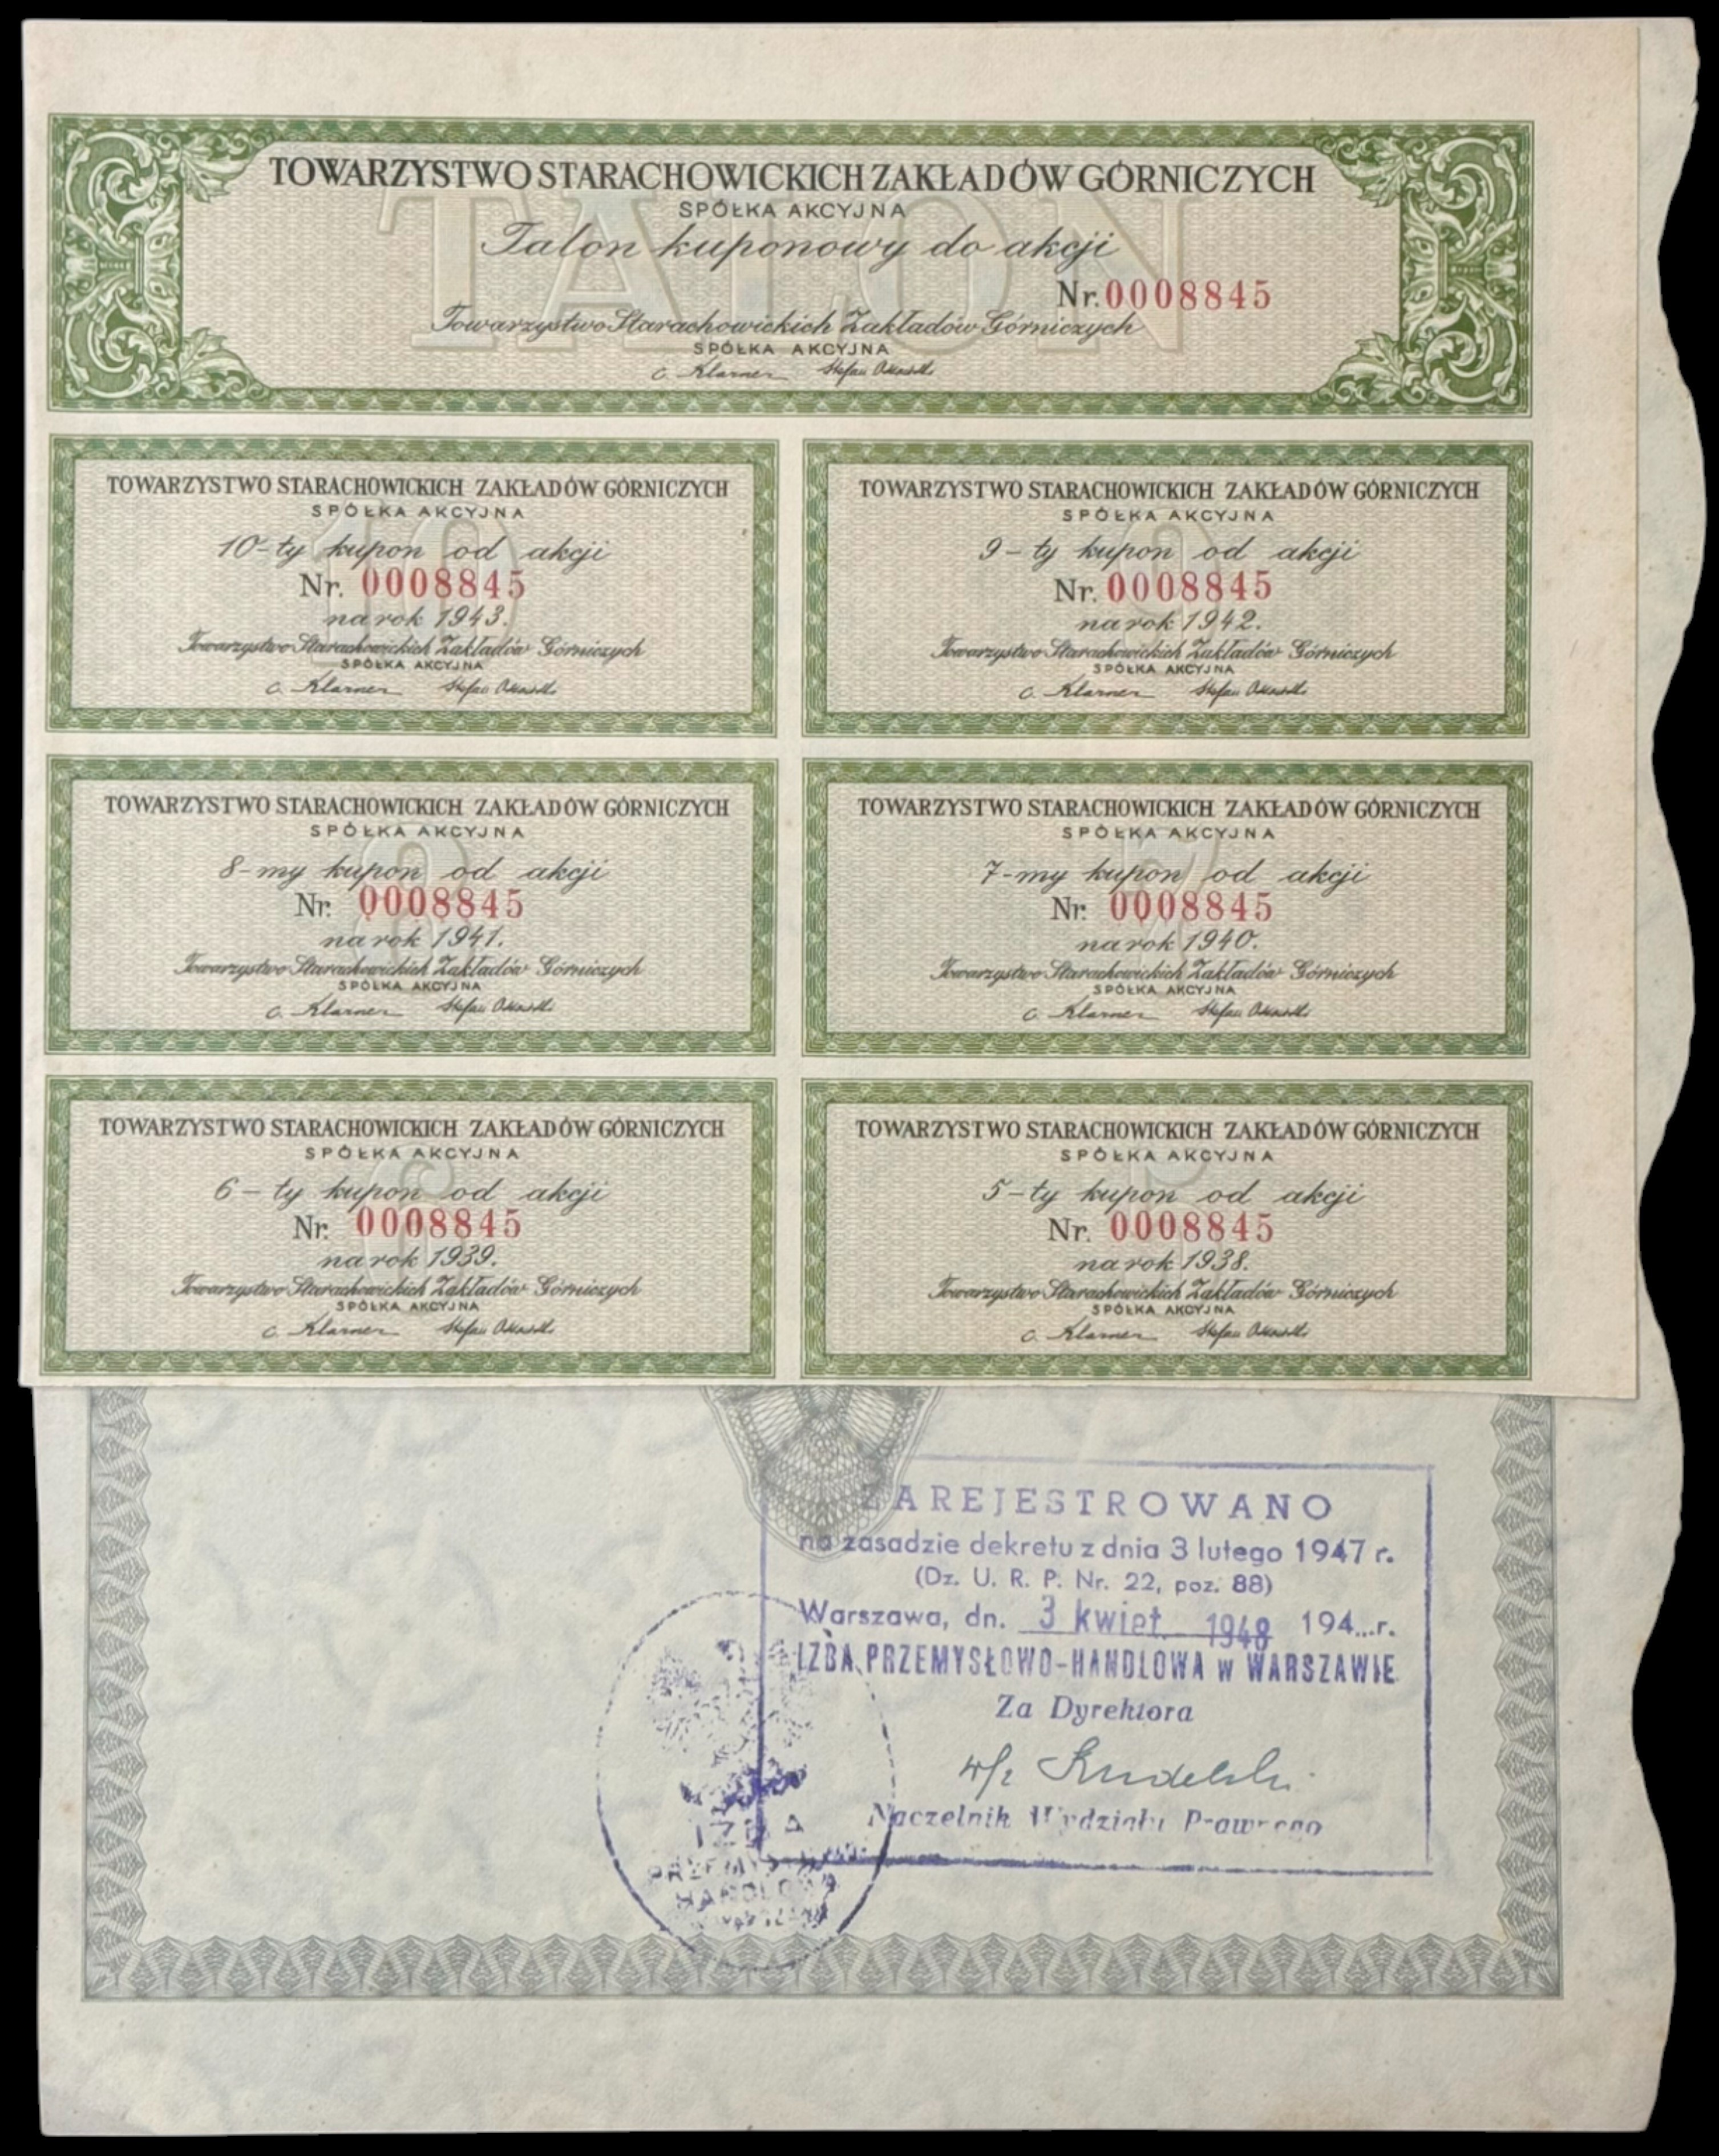 TOWARZYSTWO STARACHOWICKICH ZAKŁADÓW GÓRNICZYCH
SPÓŁKA AKCYJNA
TALON
Talon kuponowy do akcji
Nr. 0008845
Towarzystwo Starachowickich Zakładów Górniczych
SPÓŁKA AKCYJNA
C. Klarner Stefan
TOWARZYSTWO STARACHOWICKICH ZAKŁADÓW GÓRNICZYCH
SPÓŁKA AKCYJNA
10-ty kupon od akcji
Nr. 0008845
na rok 1943.
Towarzystwo Starachowickich Zakładów Górniczych
SPÓŁKA AKCYJNA
C. Klarner Stefan
TOWARZYSTWO STARACHOWICKICH ZAKŁADÓW GÓRNICZYCH
SPÓŁKA AKCYJNA
9-ty kupon od akcji
Nr. 0008845
na rok 1942.
Towarzystwo Starachowickich Zakładów Górniczych
SPÓŁKA AKCYJNA
C. Klarner Stefan
TOWARZYSTWO STARACHOWICKICH ZAKŁADÓW GÓRNICZYCH
SPÓŁKA AKCYJNA
8-my kupon od akcji
Nr. 0008845
na rok 1941.
Towarzystwo Starachowickich Zakładów Górniczych
SPÓŁKA AKCYJNA
C. Klarner Stefan
TOWARZYSTWO STARACHOWICKICH ZAKŁADÓW GÓRNICZYCH
SPÓŁKA AKCYJNA
7-my kupon od akcji
Nr. 0008845
na rok 1940.
Towarzystwo Starachowickich Zakładów Górniczych
SPÓŁKA AKCYJNA
C. Klarner Stefan
TOWARZYSTWO STARACHOWICKICH ZAKŁADÓW GÓRNICZYCH
SPÓŁKA AKCYJNA
6-ty kupon od akcji
Nr. 0008845
na rok 1939.
Towarzystwo Starachowickich Zakładów Górniczych
SPÓŁKA AKCYJNA
C. Klarner Stefan
TOWARZYSTWO STARACHOWICKICH ZAKŁADÓW GÓRNICZYCH
SPÓŁKA AKCYJNA
5-ty kupon od akcji
Nr. 0008845
na rok 1938.
Towarzystwo Starachowickich Zakładów Górniczych
SPÓŁKA AKCYJNA
C. Klarner Stefan
ZAREJESTROWANO
na zasadzie dekretu z dnia 3 lutego 1947 r.
(Dz. U. R. P. Nr. 22, poz. 88)
Warszawa, dn. 3 kwiet. 1948 194...r.
IZBA PRZEMYSŁOWO-HANDLOWA w WARSZAWIE
Za Dyrektora
Naczelnik Wydziału Prawnego
IZBA
PRZEMYSŁOWO
HANDLOWA